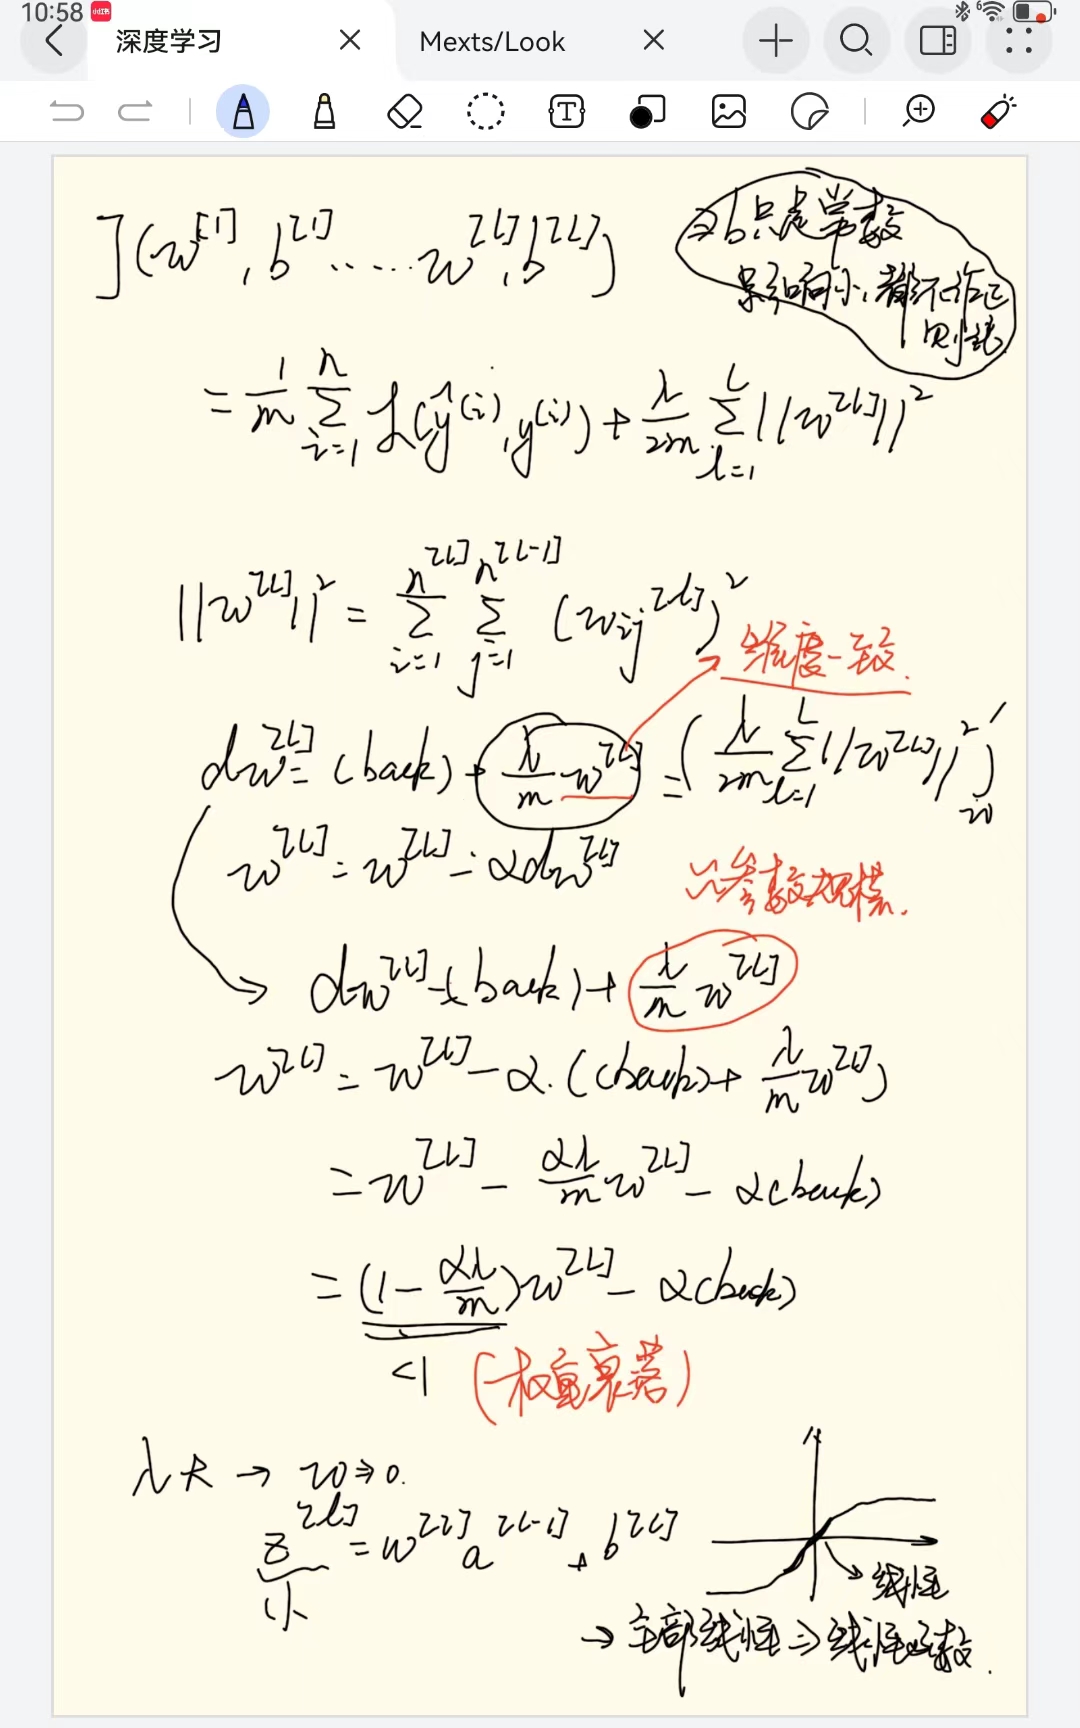 10:58
深度学习
Mexts/Look
J(w^[1], b^[1] ..... w^[L], b^[L])
⇒b只是常数
影响小, 都不作正
则化
= 1/m Σ_{i=1}^{n} L(ŷ^(i), y^(i)) + λ/2m Σ_{l=1}^{L} ||w^[L]||²
||w^[L]||² = Σ_{i=1}^{n^[L]} Σ_{j=1}^{n^[L-1]} (w_ij^[l])²
→ 维度一致.
dw^[L] = (back) + λ/m w^[L] = (λ/2m Σ_{l=1}^{L} ||w^[L]||²)'_w
w^[L] = w^[L] - αdw^[L]
参数规模.
→ dw^[L] = (back) + λ/m w^[L]
w^[L] = w^[L] - α·((back) + λ/m w^[L])
= w^[L] - αλ/m w^[L] - α(back)
= (1 - αλ/m)w^[L] - α(back)
<1 (权重衰落)
λ大 → w⇒0.
z^[l] = w^[L] a^[L-1] + b^[L]
小
线性
→ 全部线性 ⇒ 线性函数.